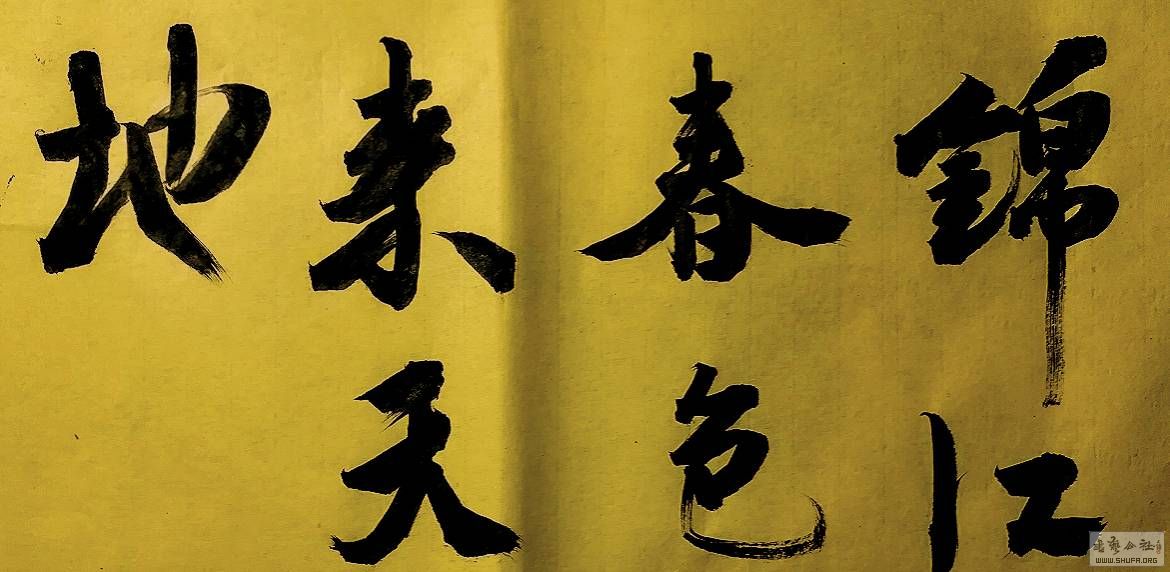 錦江
春色
来天
地
書藝公社
WWW.SHUFA.ORG